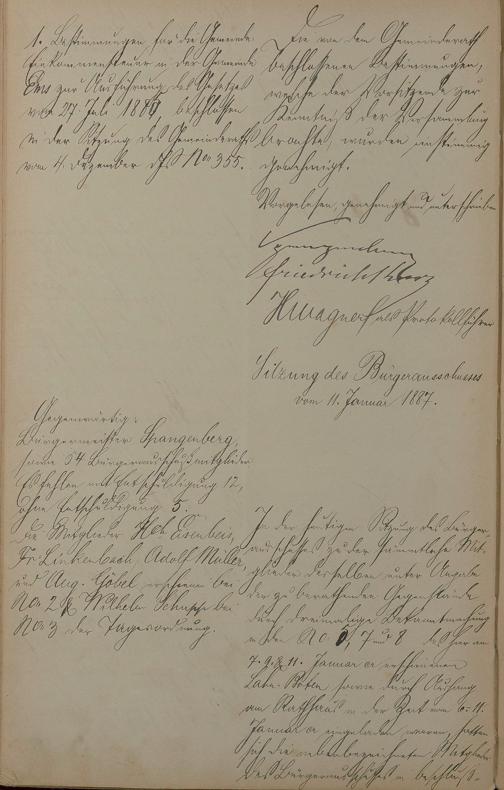 1. Bestimmungen für die Gemeinde-
Einkommensteuer in der Gemeinde
Ems zur Ausführung des Gesetzes
vom 27. Juli 1885, beschlossen
in der Sitzung des Gemeinderaths
vom 4. Dezember No 355.
Die von dem Gemeinderath
beschlossenen Bestimmungen,
welche der Vorsitzende zur
Kenntniß der Versammlung
brachte, wurden einstimmig
genehmigt.
Vorgelesen, genehmigt und unterschrieben
Spangenberg
Friedrich
HWagner als Protokollführer
Sitzung des Bürgerausschusses
vom 11. Januar 1887.
Gegenwärtig:
Bürgermeister Spangenberg,
sowie 54 Bürgerausschußmitglieder
Es fehlen mit Entschuldigung 12,
ohne Entschuldigung 5.
Die Mitglieder Hch. Eisenbeis,
Fr. Linkenbach, Adolf Müller,
und Aug. Göbel erschienen bei
No 2 & Wilhelm bei
No 3 der Tagesordnung.
In der heutigen Sitzung des Bürger-
ausschusses zu der sämmtliche Mit-
glieder desselben unter Angabe
der zu berathenden Gegenstände
durch dreimalige Bekanntmachung
in den No 6, 7 und 8 des hier am
7. 9. & 11. Januar cr erschienenen
Lahn-Boten sowie durch Aushang
am Rathhaus in der Zeit vom 6-11.
Januar cr eingeladen waren, hatten
sich die nebenbezeichneten Mitglieder
des Bürgerausschusses in beschluß-